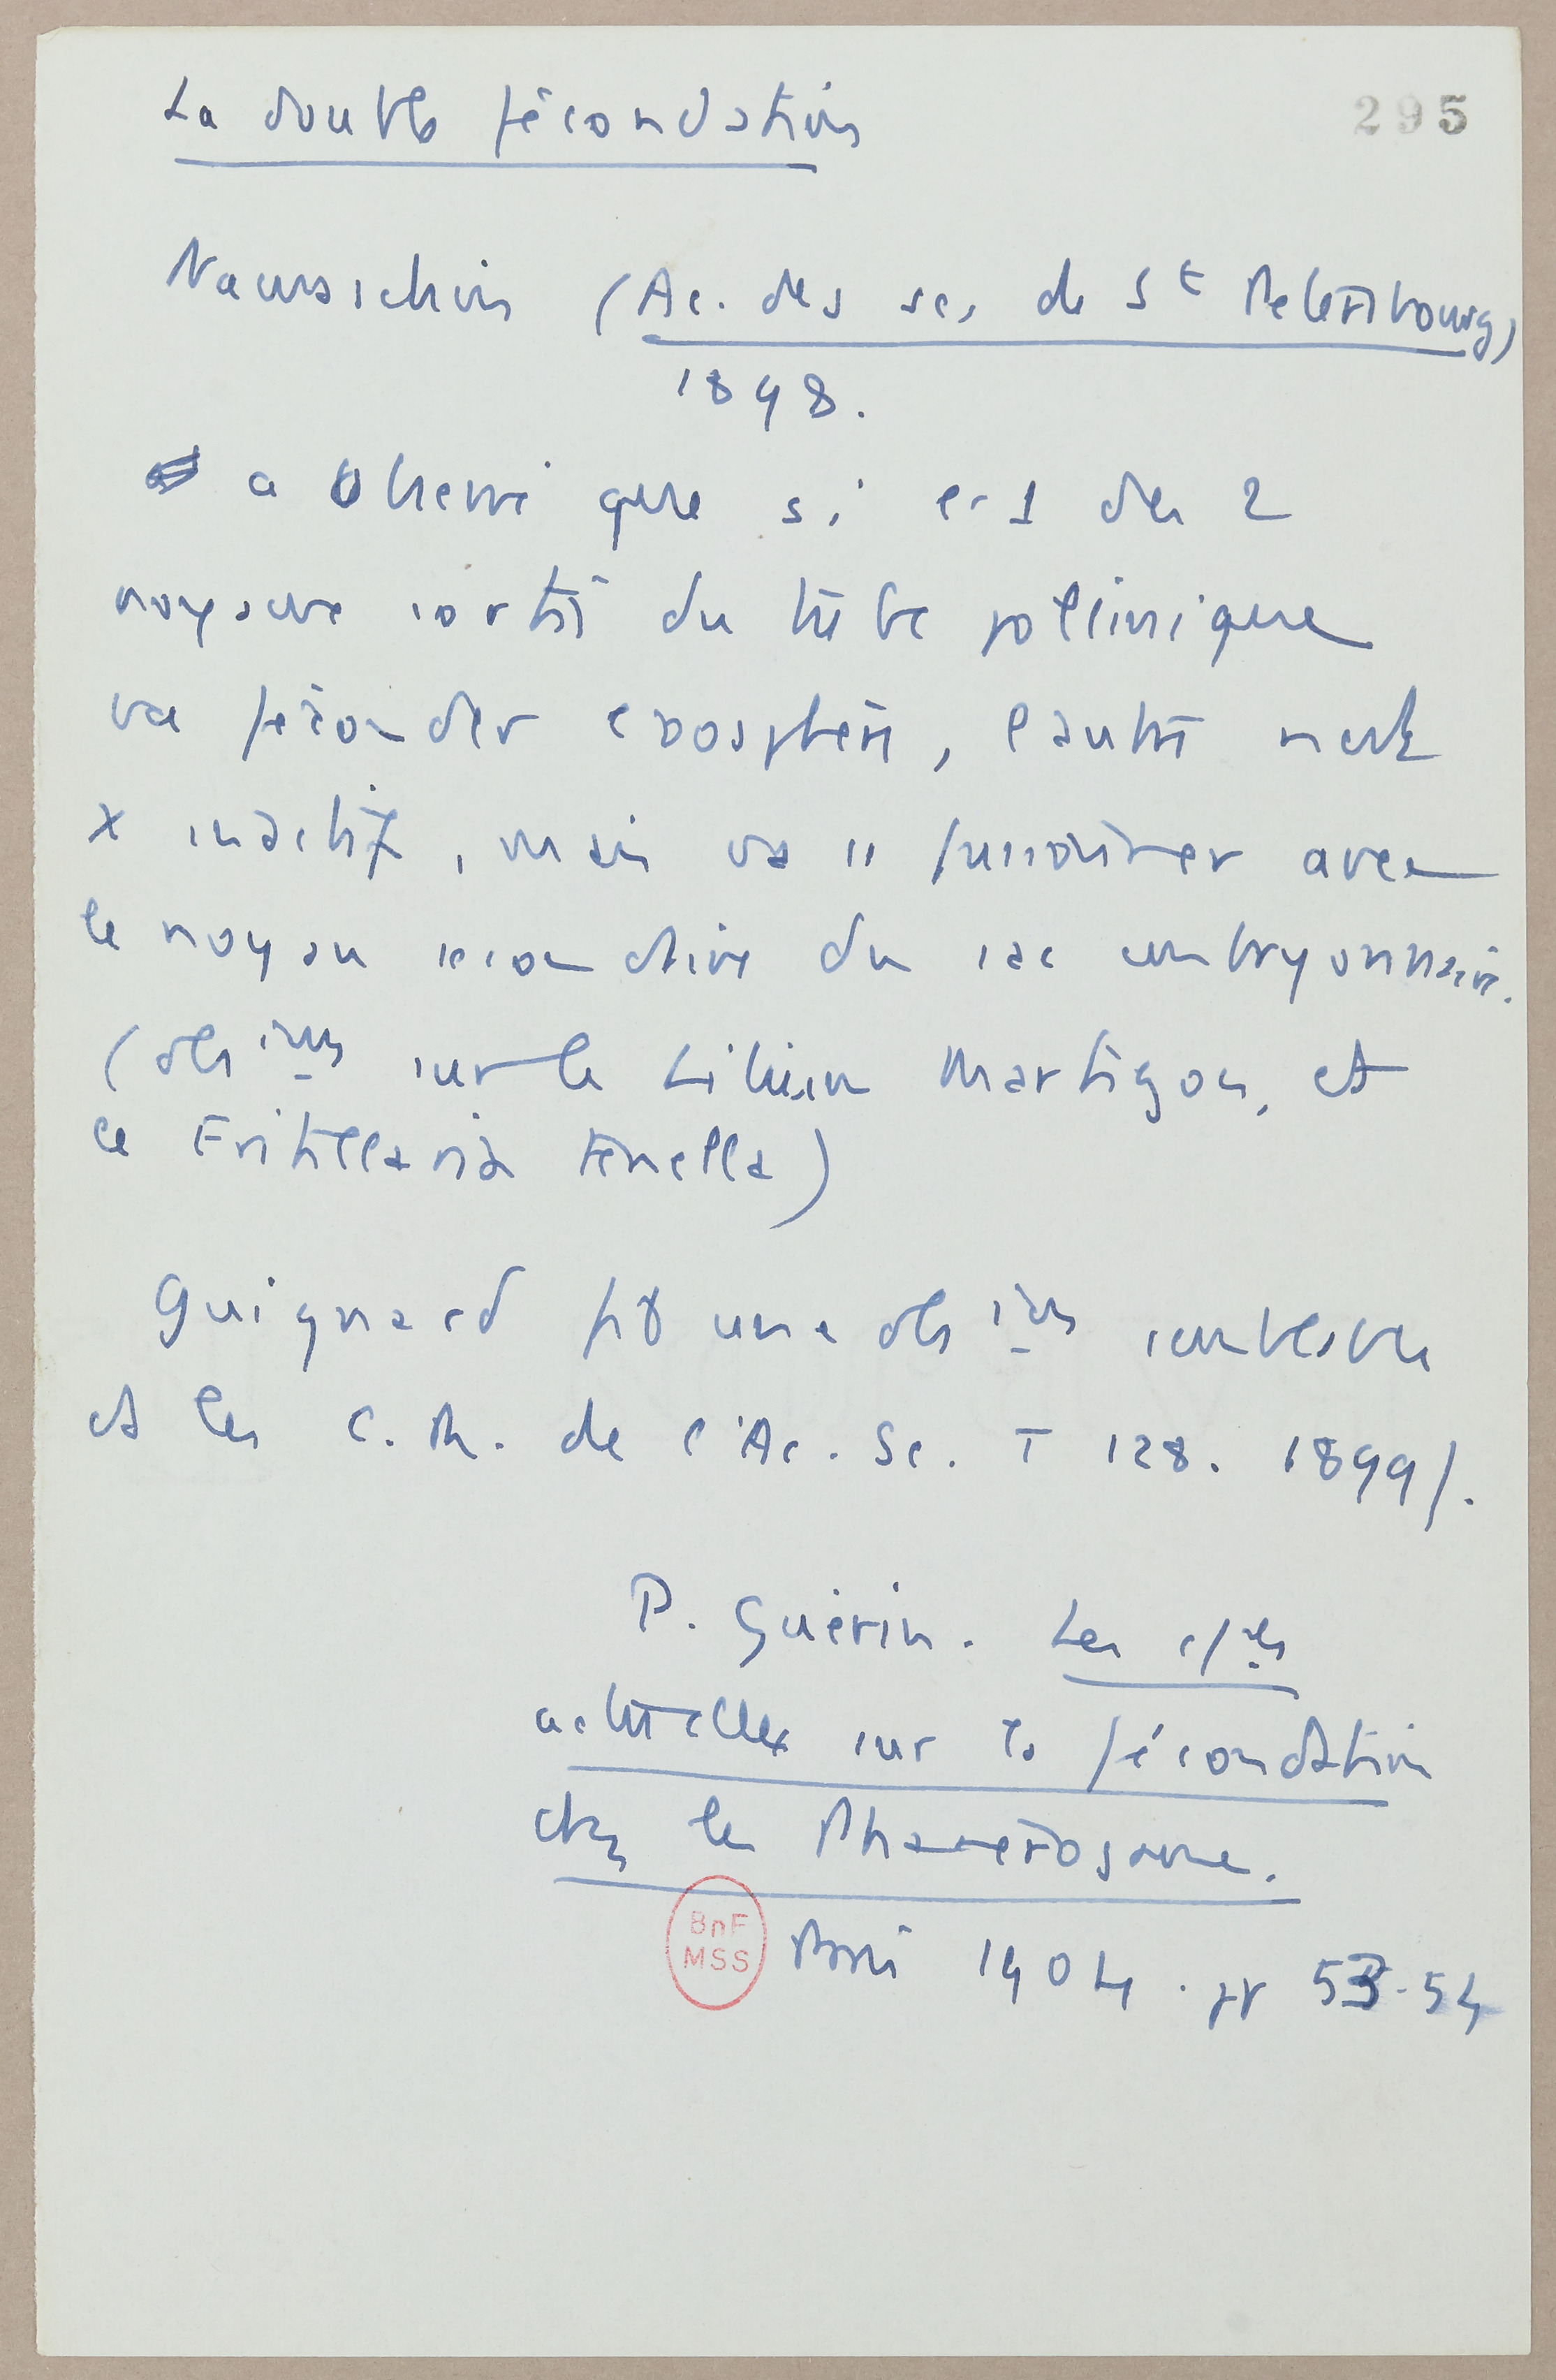 La double fécondation
295
Nawaschin (Ac. des sc. de St Petersbourg)
1898.
a observé que si l'1 des 2
noyaux sortis du tube pollinique
va féconder l'oosphère, l'autre reste
x inactif, mais va fusionner avec
le noyau secondaire du sac embryonnaire.
(obs ions sur le Lilium Martagon, et
le Fritillaria tenella)
Guignard fit une obs ion semblable
et les C. R. de l'Ac. Sc. T 128. 1899).
P. Guérin. Les c/ces
actuelles sur la fécondation
chez les Phanérogames.
BnF
MSS
Paris 1904. pp 53-54